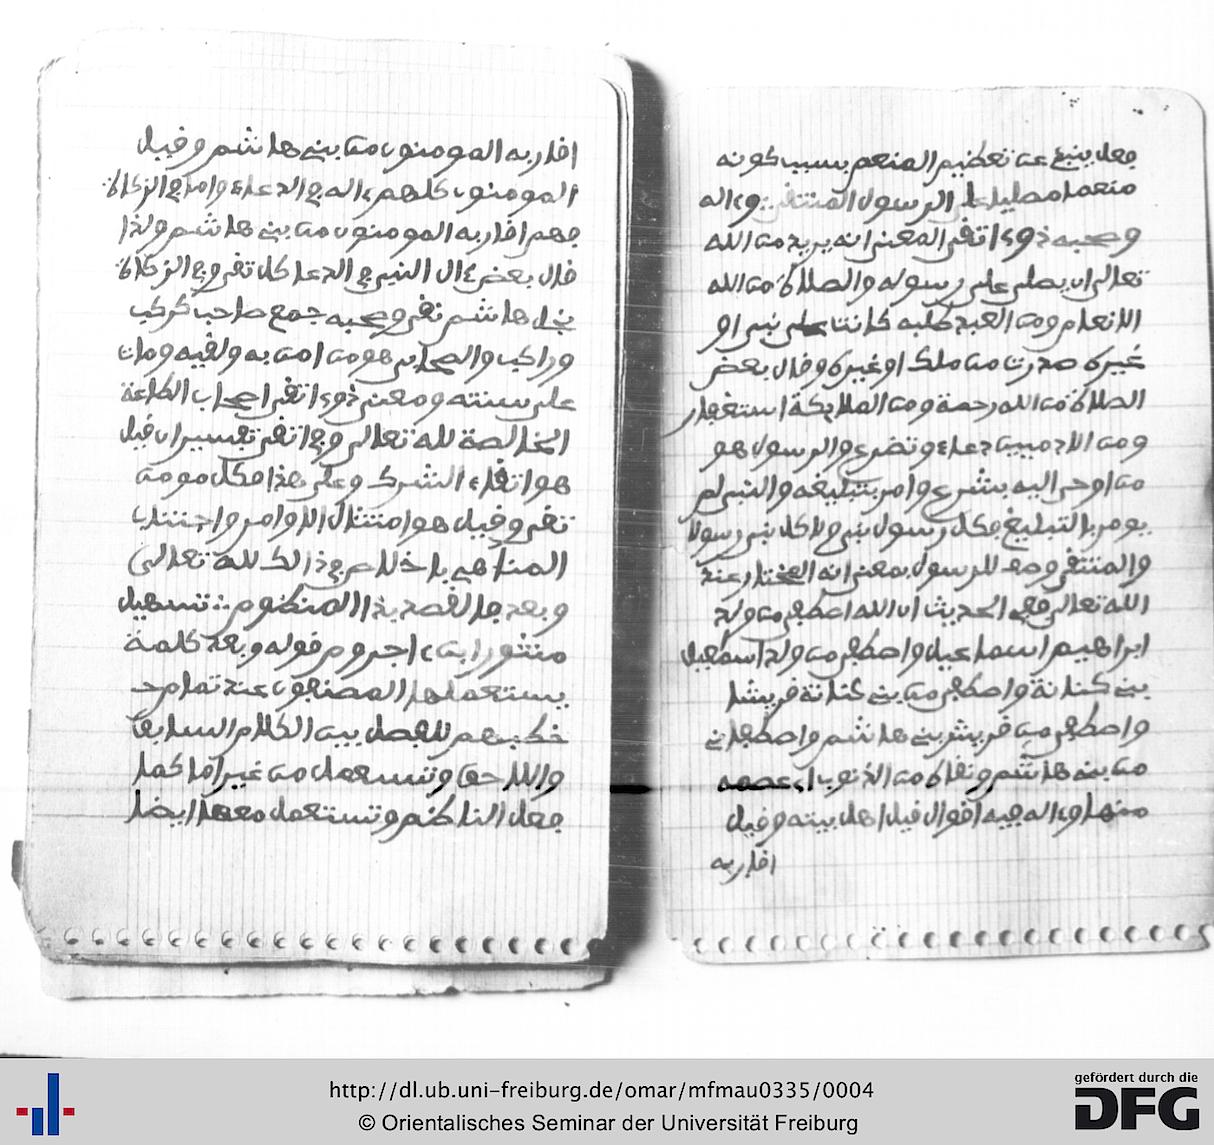 فعل ينبئ عن تعظيم المنعم بسبب كونه
منعما مصليا على الرسول المنتقى وءاله
وصحبه ذوي التقى المعنى انه يريد من الله
تعالى ان يصلي على رسوله والصلاة من الله
الانعام ومن العبد طلبه كانت على نبي او
غيره صدرت من ملك او غيره وقال بعض
الصلاة من الله رحمة ومن الملائكة استغفار
ومن الادميين دعاء وتضرع والرسول هو
من اوحي اليه بشرع وامر بتبليغه والنبي لم
يومر بالتبليغ فكل رسول نبي ولا كل نبي رسولا
والمنتقى وصف للرسول بمعنى انه المختار عند
الله تعالى ففي الحديث ان الله اصطفى من ولد
ابراهيم اسماعيل واصطفى من ولد اسمعيل
بني كنانة واصطفى من بني كنانة قريشا
واصطفى من قريش بني هاشم واصطفاني
من بني هاشم ونقاه من الذنوب اي عصمه
منها وءاله فيه اقوال قيل اهل بيته وقيل
اقاربه
اقاربه المومنون من بني هاشم وقيل
المومنون كلهم ءاله في الدعاء واما في الزكاة
فهم اقاربه المومنون من بني هاشم ولذا
قال بعض ءال النبي في الدعا كل تقي وفي الزكاة
بني هاشم تقي وصحبه جمع صاحب كركب
وراكب والصحابي هو من امن به ولقيه ومات
على سنته ومعنى ذوي التقى اصحاب الطاعة
الخالصة لله تعالى وفي التقى تفسيران قيل
هو اتقاء الشرك وعلى هذا فكل مومن
تقي وقيل هو امتثال الاوامر واجتناب
المناهي باخلاص في ذالك لله تعالى
وبعد فالقصد بذا المنظوم تسهيل
منثور ابن ءاجروم قوله وبعد كلمة
يستعملها المصنفون عند تمام
خطبهم للفصل بين الكلام السابق
واللاحق وتستعمل من غير اما كما
فعل الناظم وتستعمل معها ايضا
http://dl.ub.uni-freiburg.de/omar/mfmau0335/0004
© Orientalisches Seminar der Universität Freiburg
gefördert durch die
DFG